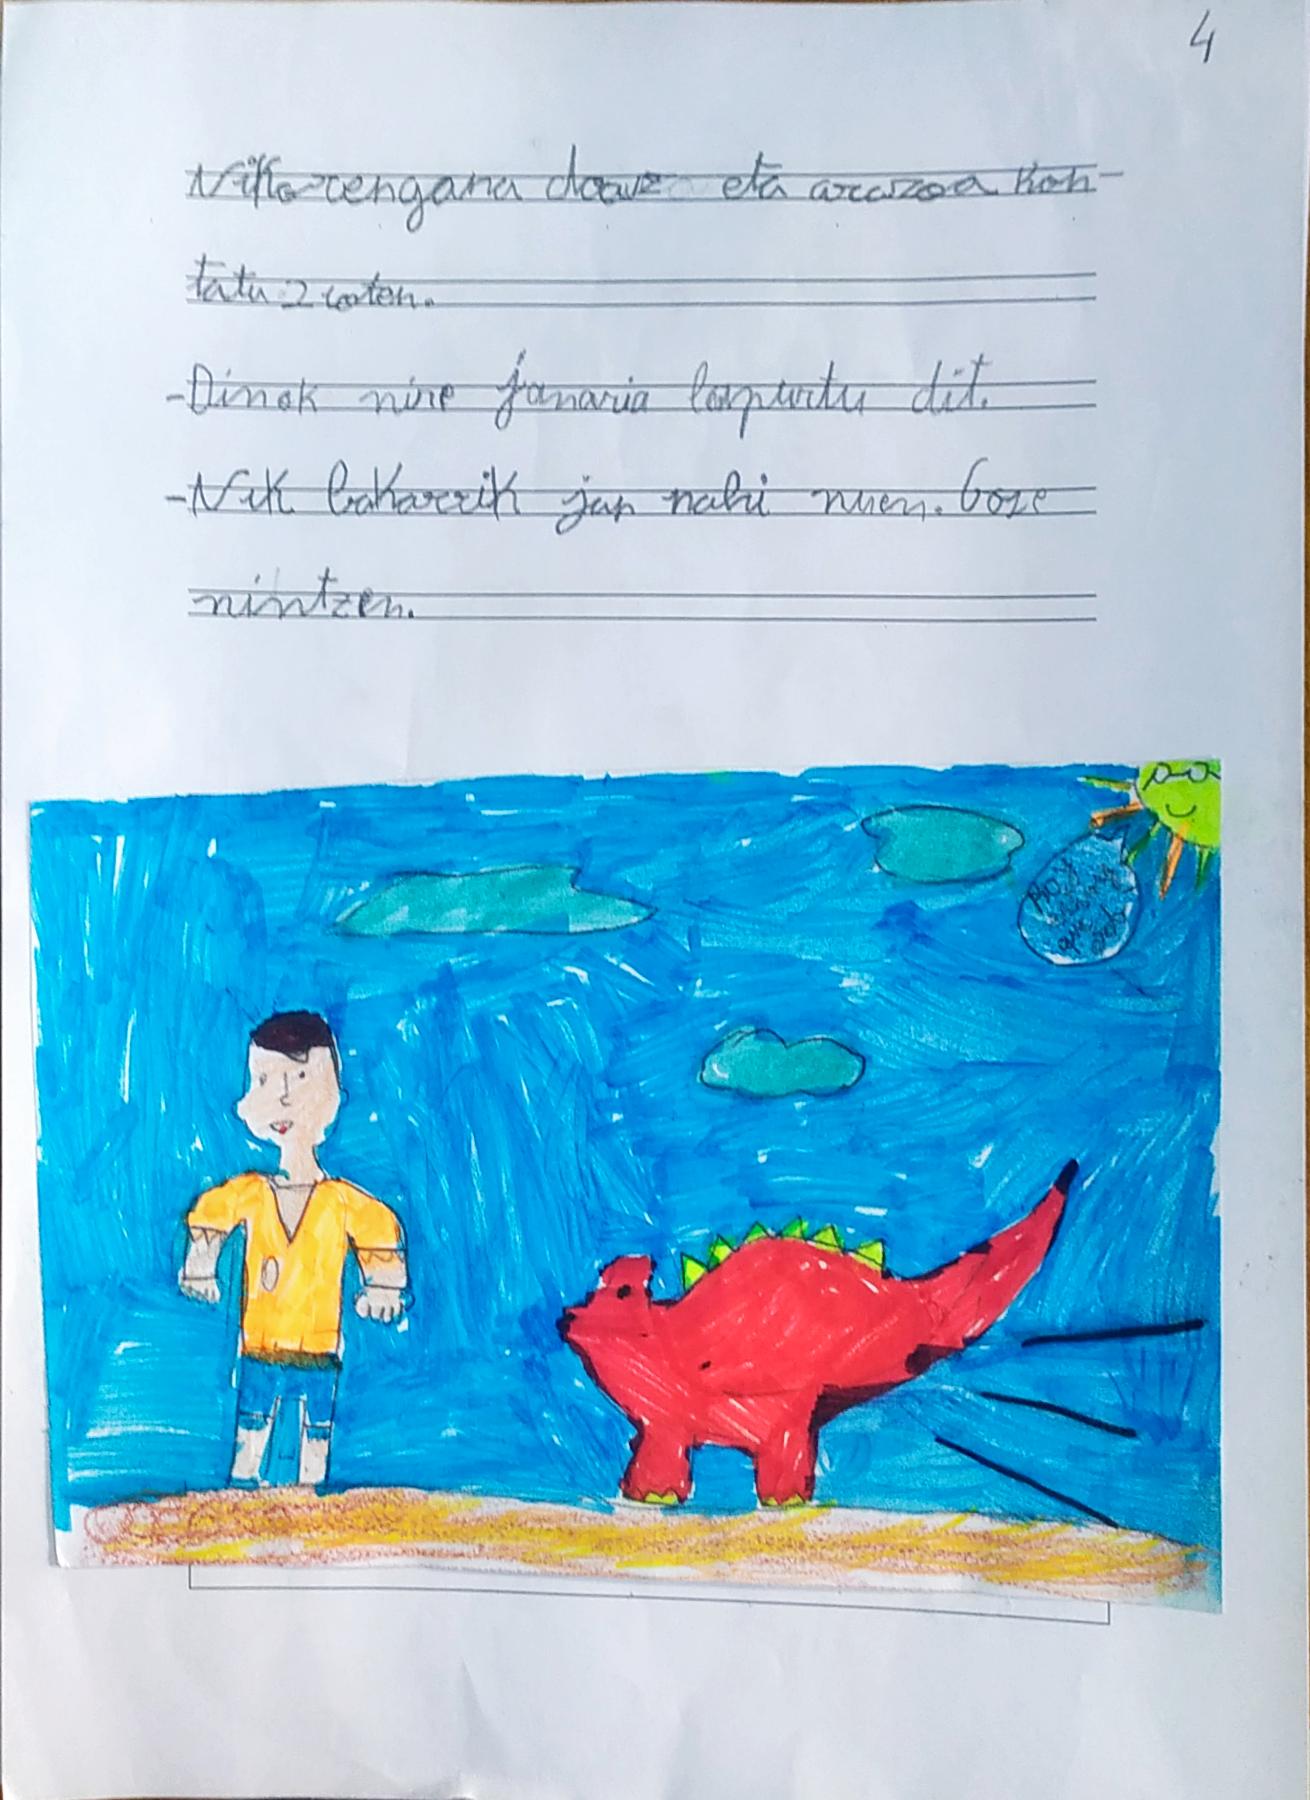 4
Nikorengana doaz eta arazoa kon-
tatu zioten.
-Dinok nire janaria lapurtu dit.
-Nik bakarrik jan nahi nuen. Gose
nintzen.